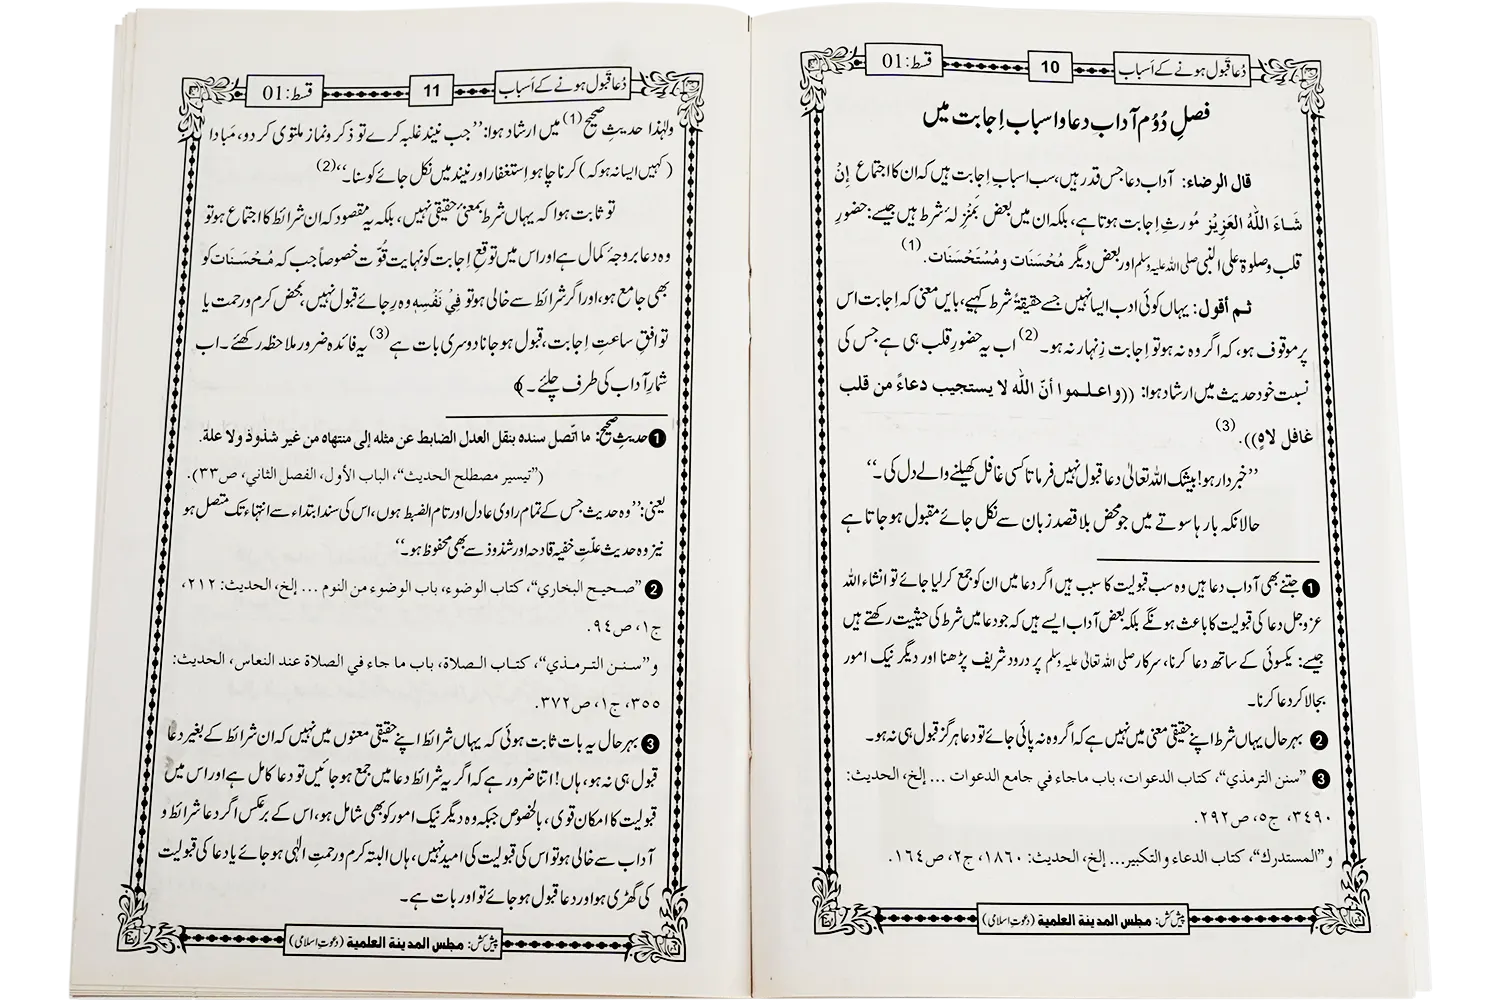 دُعا قبول ہونے کے اَسباب
10
قسط: 01
فصلِ دُوُم آدابِ دعا و اسبابِ اِجابت میں
قال الرضاء: آدابِ دعا جس قدر ہیں، سب اسبابِ اِجابت ہیں کہ ان کا اجتماع إِنْ
شَاءَ اللّٰهُ العَزِيْزُ مُورِثِ اِجابت ہوتا ہے، بلکہ ان میں بعض بَمَنْزِلۂ شرط ہیں جیسے: حضورِ
قلب و صلوٰۃ علی النبی صلی اللہ علیہ وسلم اور بعض دیگر مُحْسَنَات و مُسْتَحْسَنَات. (1)
ثم أقول: یہاں کوئی ادب ایسا نہیں جسے حقیقۃً شرط کہیے، بایں معنی کہ اِجابت اس
پر موقوف ہو، کہ اگر وہ نہ ہو تو اِجابت زِنہار نہ ہو۔ (2) اب یہ حضورِ قلب ہی ہے جس کی
نسبت خود حدیث میں ارشاد ہوا: ((واعلموا أنّ الله لا يستجيب دعاءً من قلب
غافل لاهٍ)). (3)
’’خبردار ہو! بیشک اللہ تعالیٰ دعا قبول نہیں فرماتا کسی غافل کھیلنے والے دل کی۔‘‘
حالانکہ بارہا سوتے میں جو محض بلا قصد زبان سے نکل جائے مقبول ہو جاتا ہے
❶ جتنے بھی آدابِ دعا ہیں وہ سب قبولیت کا سبب ہیں اگر دعا میں ان کو جمع کر لیا جائے تو انشاء اللہ
عزوجل دعا کی قبولیت کا باعث ہونگے بلکہ بعض آداب ایسے ہیں کہ جو دعا میں شرط کی حیثیت رکھتے ہیں
جیسے: یکسوئی کے ساتھ دعا کرنا، سرکار صلی اللہ تعالیٰ علیہ وسلم پر درود شریف پڑھنا اور دیگر نیک امور
بجالا کر دعا کرنا۔
❷ بہرحال یہاں شرط اپنے حقیقی معنی میں نہیں ہے کہ اگر وہ نہ پائی جائے تو دعا ہرگز قبول ہی نہ ہو۔
❸ ”سنن الترمذي“، كتاب الدعوات، باب ماجاء في جامع الدعوات ... إلخ، الحديث:
٣٤٩٠، ج٥، ص٢٩٢.
و”المستدرك“، كتاب الدعاء والتكبير... إلخ، الحديث: ١٨٦٠، ج٢، ص١٦٤.
پیش کش: مجلس المدينة العلمية (دعوتِ اسلامی)
دُعا قبول ہونے کے اَسباب
11
قسط: 01
ولہٰذا حدیثِ صحیح (1) میں ارشاد ہوا: ’’جب نیند غلبہ کرے تو ذکر و نماز ملتوی کر دو، مَبادا
(کہیں ایسا نہ ہو کہ) کرنا چاہو اِستغفار اور نیند میں نکل جائے کوسنا۔‘‘ (2)
تو ثابت ہوا کہ یہاں شرط بمعنیٔ حقیقی نہیں، بلکہ یہ مقصود کہ ان شرائط کا اجتماع ہو تو
وہ دعا بروجۂ کمال ہے اور اس میں توقعِ اِجابت کو نہایت قُوّت خصوصاً جب کہ مُحْسَنَات کو
بھی جامع ہو، اور اگر شرائط سے خالی ہو تو فِيْ نَفْسِه وہ رجائے قبول نہیں، بمحض کرم و رحمت یا
توافقِ ساعتِ اِجابت، قبول ہو جانا دوسری بات ہے (3) یہ فائدہ ضرور ملاحظہ رکھئے۔ اب
شمارِ آداب کی طرف چلئے۔ ﴾
❶ حدیثِ صحیح: ما اتّصل سنده بنقل العدل الضابط عن مثله إلى منتهاه من غير شذوذ ولا علة.
(”تيسير مصطلح الحديث“، الباب الأول، الفصل الثاني، ص٣٣).
یعنی: ’’وہ حدیث جس کے تمام راوی عادل اور تام الضبط ہوں، اس کی سند ابتداء سے انتہاء تک متصل ہو
نیز وہ حدیث علّتِ خفیہ قادحہ اور شذوذ سے بھی محفوظ ہو۔‘‘
❷ ”صحيح البخاري“، كتاب الوضوء، باب الوضوء من النوم ... إلخ، الحديث: ٢١٢،
ج١، ص٩٤.
و”سنن الترمذي“، كتاب الصلاة، باب ما جاء في الصلاة عند النعاس، الحديث:
٣٥٥، ج١، ص٣٧٢.
❸ بہر حال یہ بات ثابت ہوئی کہ یہاں شرائط اپنے حقیقی معنوں میں نہیں کہ ان شرائط کے بغیر دعا
قبول ہی نہ ہو، ہاں! اتنا ضرور ہے کہ اگر یہ شرائط دعا میں جمع ہو جائیں تو دعا کامل ہے اور اس میں
قبولیت کا امکان قوی، بالخصوص جبکہ وہ دیگر نیک امور کو بھی شامل ہو، اس کے برعکس اگر دعا شرائط و
آداب سے خالی ہو تو اس کی قبولیت کی امید نہیں، ہاں البتہ کرم و رحمتِ الٰہی ہو جائے یا دعا کی قبولیت
کی گھڑی ہو اور دعا قبول ہو جائے تو اور بات ہے۔
پیش کش: مجلس المدينة العلمية (دعوتِ اسلامی)